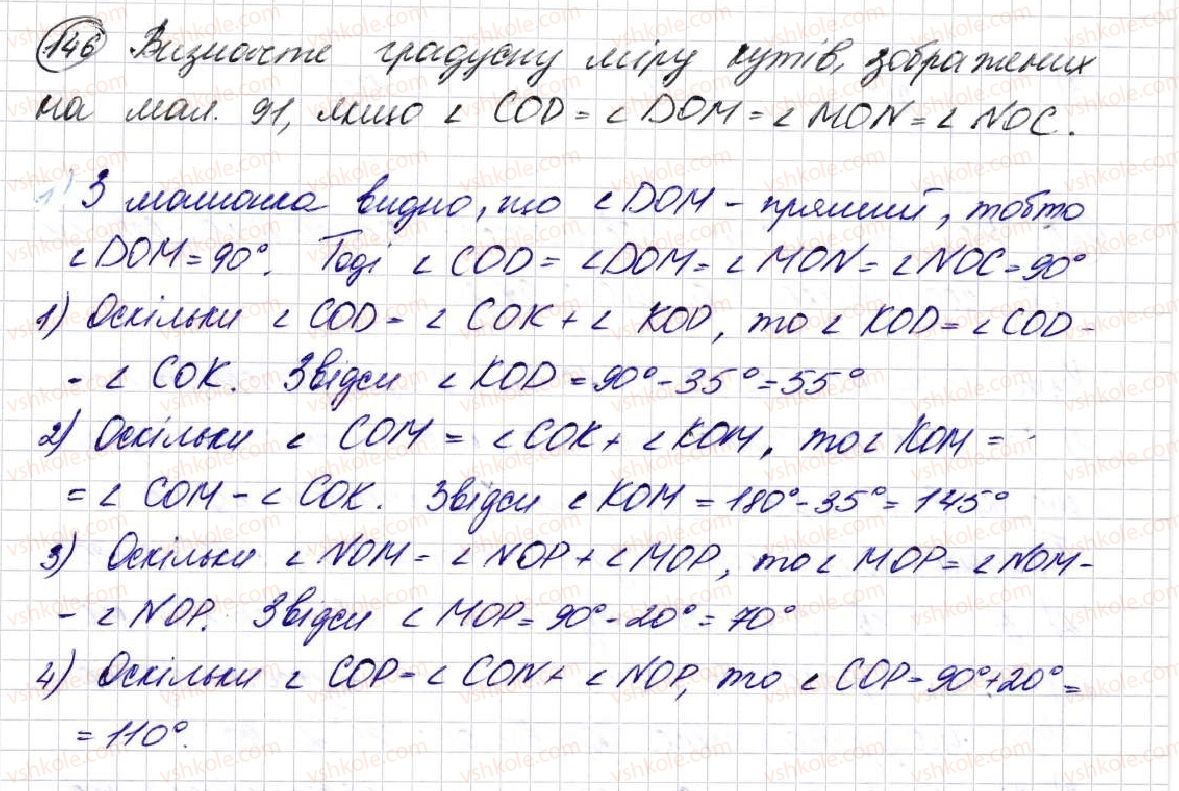 146 Визначте градусну міру кутів, зображених
на мал. 91, якщо ∠ COD = ∠ DOM = ∠ MON = ∠ NOC.
1) З малюнка видно, що ∠ DOM - прямий, тобто
∠ DOM = 90°. Тоді ∠ COD = ∠ DOM = ∠ MON = ∠ NOC = 90°
1) Оскільки ∠ COD = ∠ COK + ∠ KOD, то ∠ KOD = ∠ COD -
- ∠ COK. Звідси ∠ KOD = 90° - 35° = 55°
2) Оскільки ∠ COM = ∠ COK + ∠ KOM, то ∠ KOM =
= ∠ COM - ∠ COK. Звідси ∠ KOM = 180° - 35° = 145°
3) Оскільки ∠ NOM = ∠ NOP + ∠ MOP, то ∠ MOP = ∠ NOM -
- ∠ NOP. Звідси ∠ MOP = 90° - 20° = 70°
4) Оскільки ∠ COP = ∠ CON + ∠ NOP, то ∠ COP = 90° + 20° =
= 110°.
vshkole.com